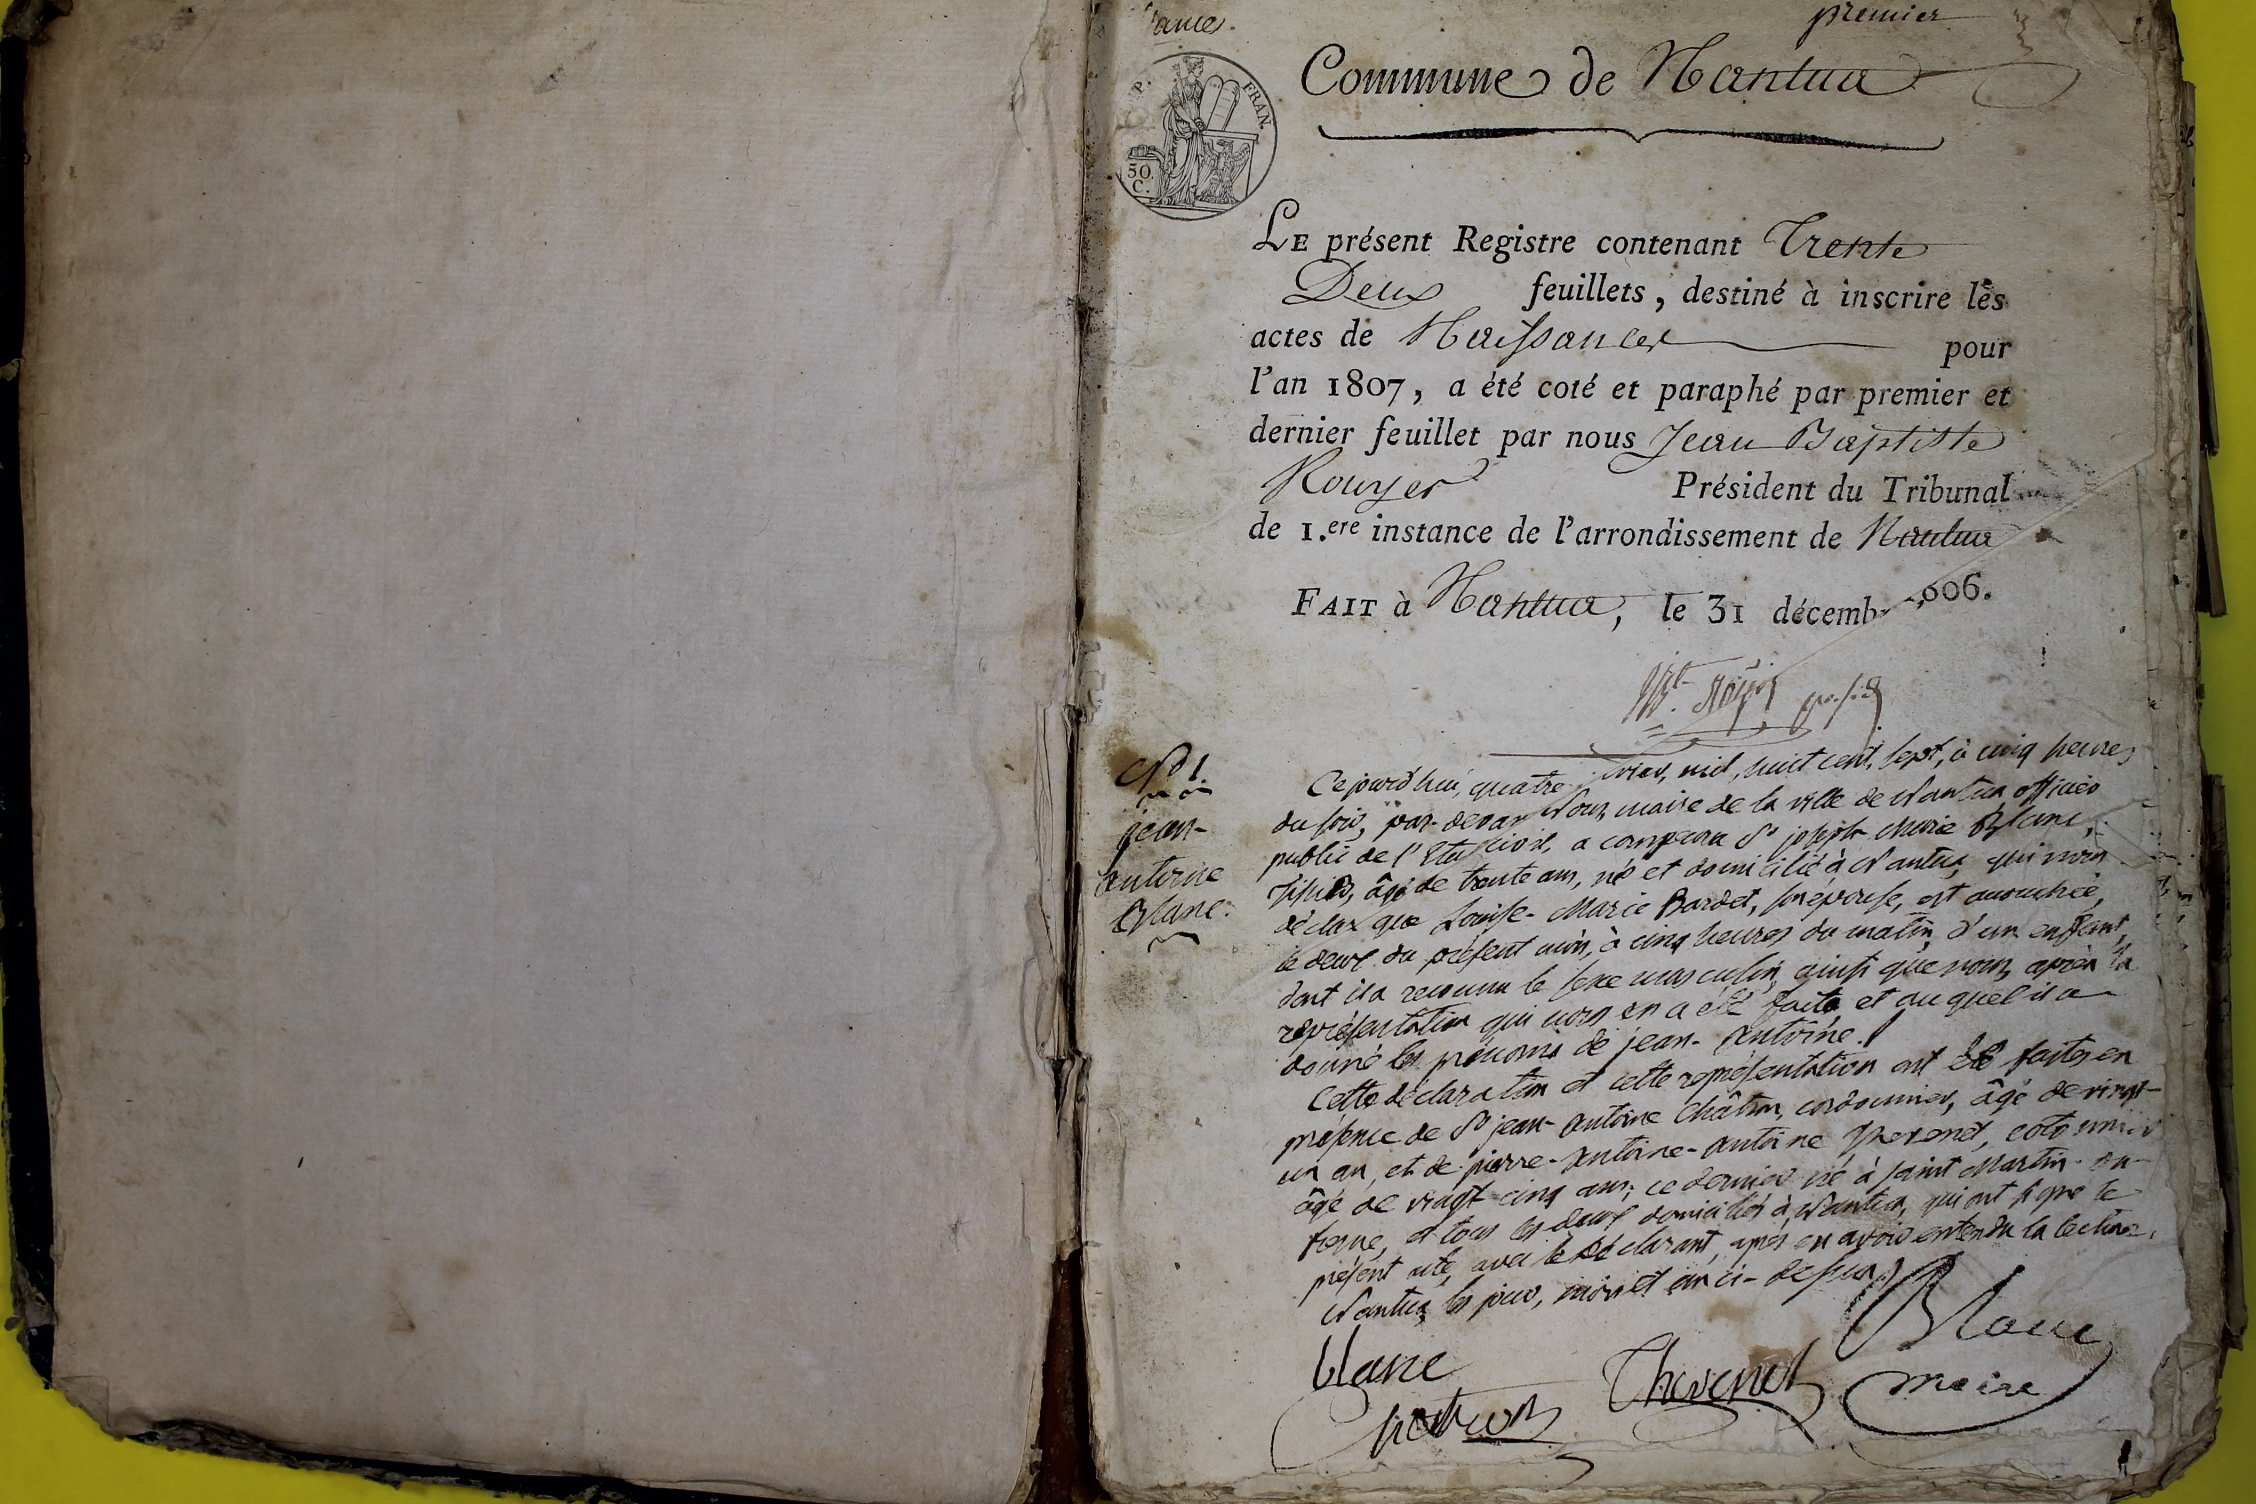 premier
Commune de Nantua
P. FRAN.
50.
C.
LE présent Registre contenant Trente
Deux feuillets, destiné à inscrire les
actes de Naissances pour
l'an 1807, a été coté et paraphé par premier et
dernier feuillet par nous Jean Baptiste
Rouyer Président du Tribunal
de 1.ere instance de l'arrondissement de Nantua
FAIT à Nantua, le 31 décemb 806.
N.o 1.
jean-
antoine
Blanc.
Cejourd'hui, quatre janvier, mil, huit cent, sept, à cinq heures
du soir, par-devant Nous, maire de la ville de Nantua officier
public de l'Etat civil, a comparu Sr joseph Marie Blanc,
âgé de trente ans, né et domicilié à Nantua, qui nous
déclare que Louise-Marie Bardet, son épouse, est accouchée,
le deux du présent mois, à cinq heures du matin, d'un enfant,
dont il a reconnu le sexe masculin, ainsi que nous, après la
représentation qui nous en a été faite et auquel il a
donné les prénoms de jean-Antoine.
Cette déclaration et cette représentation ont été faites en
présence de Sr jean-Antoine Châtron, cordonnier, âgé de vingt-
un an, et de pierre-Antoine-Antoine Thevenet, cotonnier
âgé de vingt-cinq ans; ce dernier né à saint Martin-du-
fresne, et tous les deux domiciliés à Nantua, qui ont signé le
présent acte, avec le déclarant, après en avoir entendu la lecture.
Nantua, les jour, mois et an ci-dessus.
Blanc
blanc Thevenet maire
Chatron